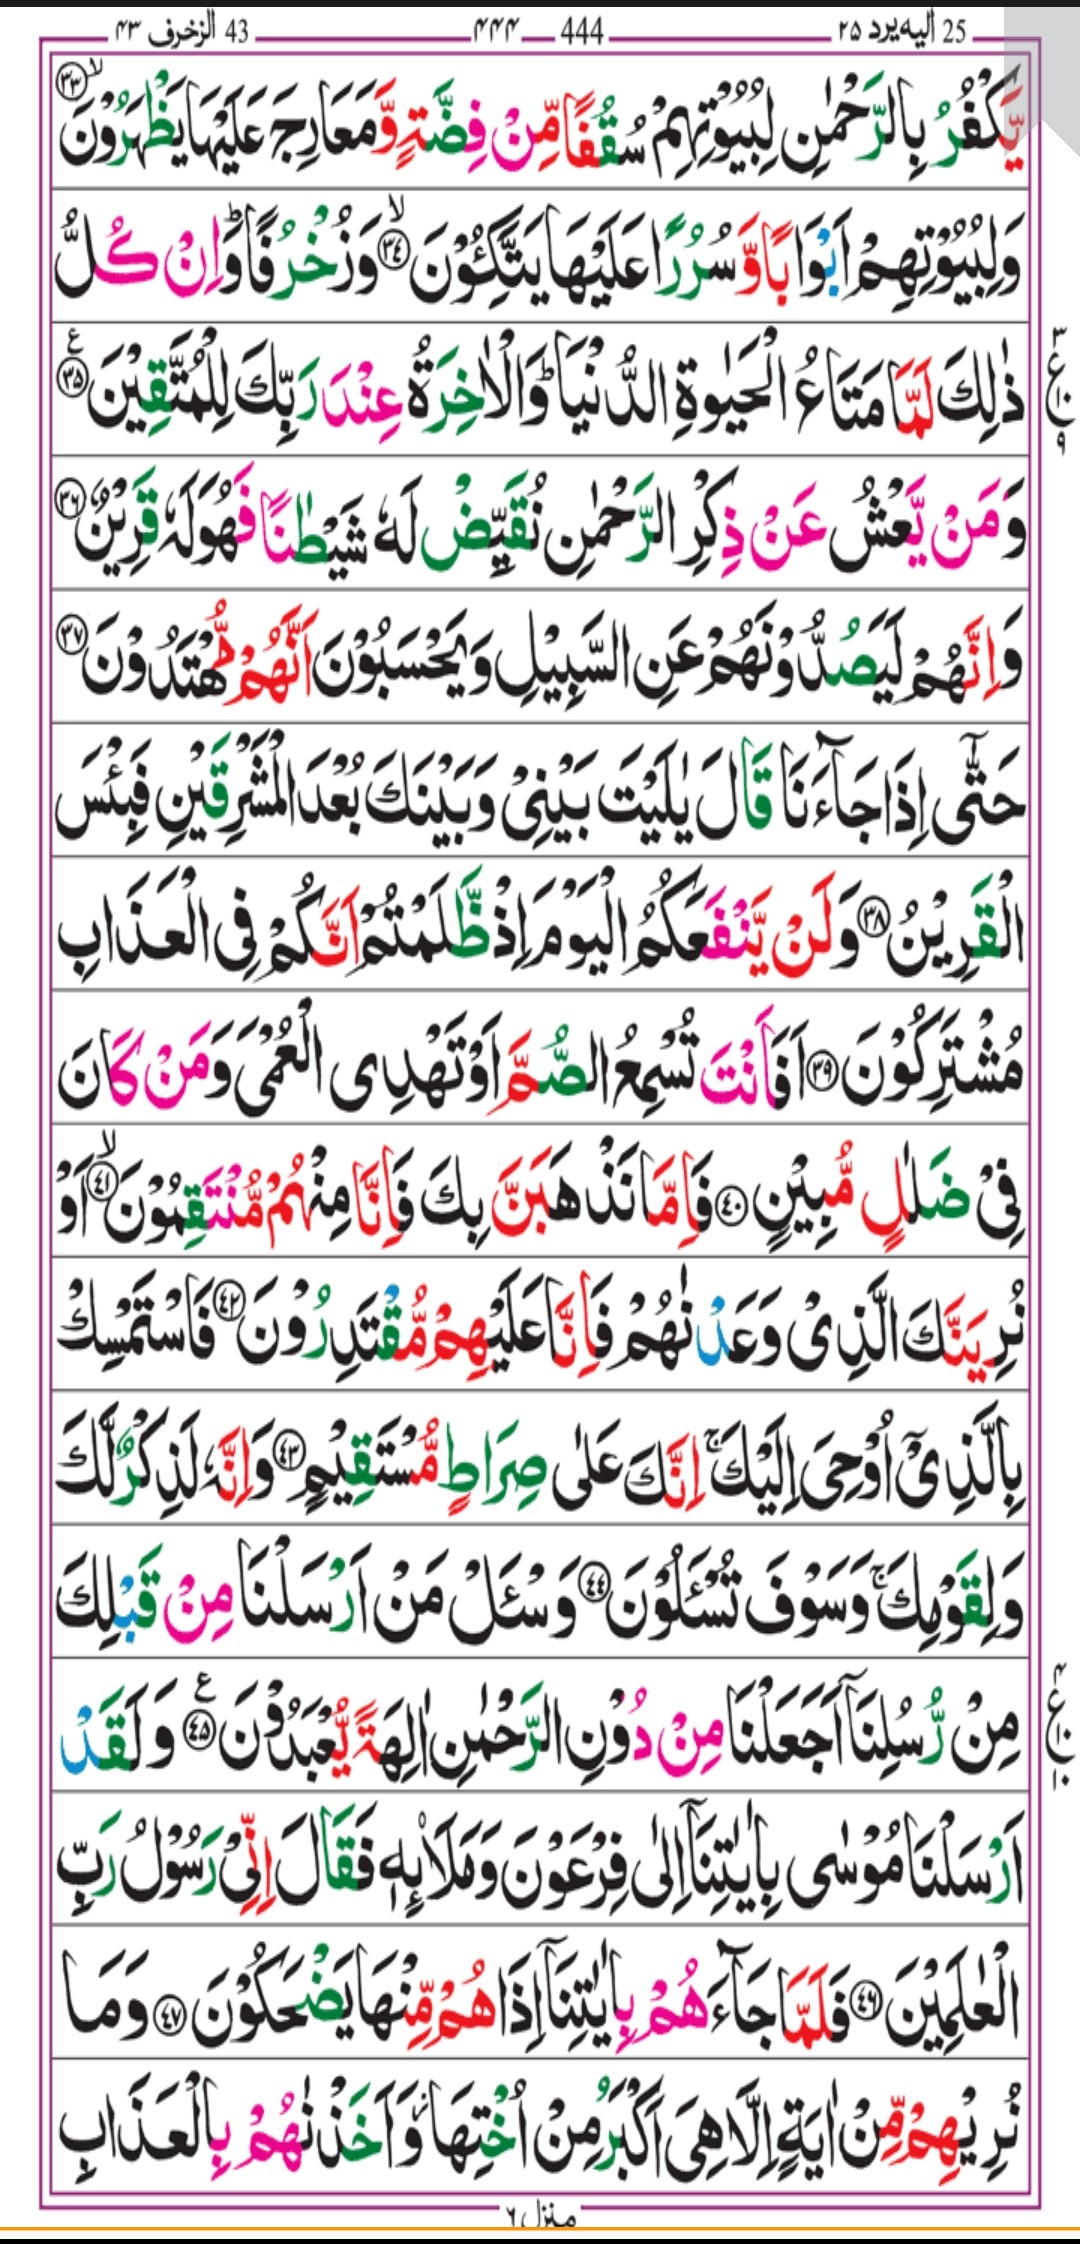 25 اليه يرد ٢٥ — 444 — ۴۴۴ — 43 الزخرف ۴۳
يَّكْفُرُ بِالرَّحْمٰنِ لِبُيُوْتِهِمْ سُقُفًا مِّنْ فِضَّةٍ وَّمَعَارِجَ عَلَيْهَا يَظْهَرُوْنَ ۙ﴿۳۳﴾
وَلِبُيُوْتِهِمْ اَبْوَابًا وَّسُرُرًا عَلَيْهَا يَتَّكِـُٔوْنَ ۙ﴿۳۴﴾ وَزُخْرُفًا ؕ وَاِنْ كُلُّ
ذٰلِكَ لَمَّا مَتَاعُ الْحَيٰوةِ الدُّنْيَا ؕ وَالْاٰخِرَةُ عِنْدَ رَبِّكَ لِلْمُتَّقِيْنَ ﴿۳۵﴾ ع
۳ ع ۱۰ ۹
وَمَنْ يَّعْشُ عَنْ ذِكْرِ الرَّحْمٰنِ نُقَيِّضْ لَهٗ شَيْطٰنًا فَهُوَ لَهٗ قَرِيْنٌ ﴿۳۶﴾
وَاِنَّهُمْ لَيَصُدُّوْنَهُمْ عَنِ السَّبِيْلِ وَيَحْسَبُوْنَ اَنَّهُمْ مُّهْتَدُوْنَ ﴿۳۷﴾
حَتّٰٓى اِذَا جَآءَنَا قَالَ يٰلَيْتَ بَيْنِيْ وَبَيْنَكَ بُعْدَ الْمَشْرِقَيْنِ فَبِئْسَ
الْقَرِيْنُ ﴿۳۸﴾ وَلَنْ يَّنْفَعَكُمُ الْيَوْمَ اِذْ ظَّلَمْتُمْ اَنَّكُمْ فِى الْعَذَابِ
مُشْتَرِكُوْنَ ﴿۳۹﴾ اَفَاَنْتَ تُسْمِعُ الصُّمَّ اَوْ تَهْدِى الْعُمْىَ وَمَنْ كَانَ
فِيْ ضَلٰلٍ مُّبِيْنٍ ﴿۴۰﴾ فَاِمَّا نَذْهَبَنَّ بِكَ فَاِنَّا مِنْهُمْ مُّنْتَقِمُوْنَ ۙ﴿۴۱﴾ اَوْ
نُرِيَنَّكَ الَّذِيْ وَعَدْنٰهُمْ فَاِنَّا عَلَيْهِمْ مُّقْتَدِرُوْنَ ﴿۴۲﴾ فَاسْتَمْسِكْ
بِالَّذِيْٓ اُوْحِىَ اِلَيْكَ ۚ اِنَّكَ عَلٰى صِرَاطٍ مُّسْتَقِيْمٍ ﴿۴۳﴾ وَاِنَّهٗ لَذِكْرٌ لَّكَ
وَلِقَوْمِكَ ۚ وَسَوْفَ تُسْـَٔلُوْنَ ﴿۴۴﴾ وَسْـَٔلْ مَنْ اَرْسَلْنَا مِنْ قَبْلِكَ
مِنْ رُّسُلِنَآ اَجَعَلْنَا مِنْ دُوْنِ الرَّحْمٰنِ اٰلِهَةً يُّعْبَدُوْنَ ﴿۴۵﴾ ع وَلَقَدْ
۴ ع ۱۰ ۱۰
اَرْسَلْنَا مُوْسٰى بِاٰيٰتِنَآ اِلٰى فِرْعَوْنَ وَمَلَا۟ئِهٖ فَقَالَ اِنِّيْ رَسُوْلُ رَبِّ
الْعٰلَمِيْنَ ﴿۴۶﴾ فَلَمَّا جَآءَهُمْ بِاٰيٰتِنَآ اِذَا هُمْ مِّنْهَا يَضْحَكُوْنَ ﴿۴۷﴾ وَمَا
نُرِيْهِمْ مِّنْ اٰيَةٍ اِلَّا هِىَ اَكْبَرُ مِنْ اُخْتِهَا ؗ وَاَخَذْنٰهُمْ بِالْعَذَابِ
منزل ٦